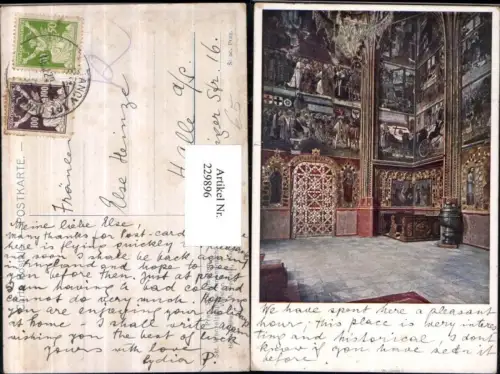 POSTKARTE
Fräulein
Else Heinze
Halle a/S.
Str. 16.
Artikel Nr.
229896
Meine liebe Else,
many thanks for Post-card
here is flying quickly
and soon I shall be back, again
in England and hope to see
you before then. Just at present
I am having a bad cold and
cannot do very much. Hoping
you are enjoying your holiday
at home I shall write again
wishing you the best of luck
Yours with love
Lydia P.
We have spent here a pleasant
hour; this place is very interes
ting and historical, I don't
know if you have seen it
before.